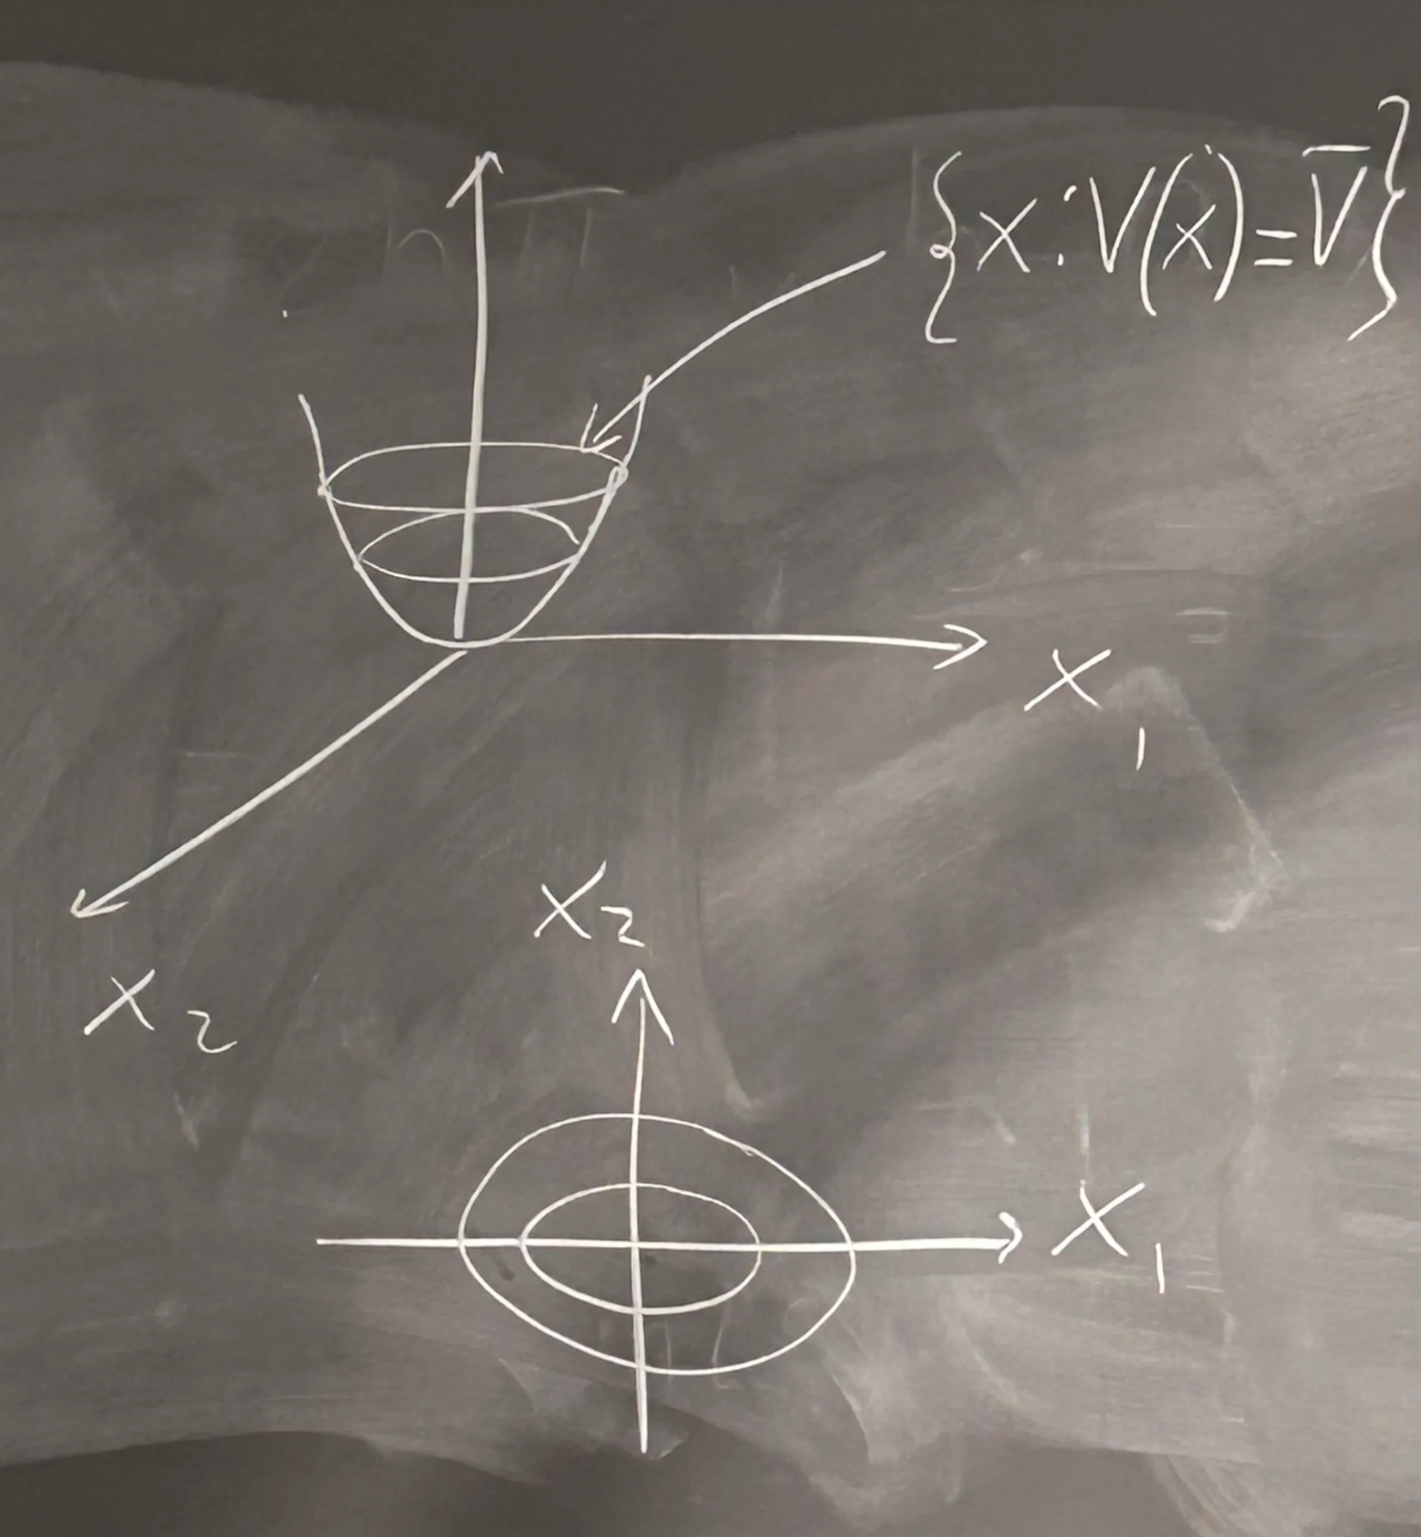 {x : V(x) = V̅}
x₁
x₂
x₂
x₁